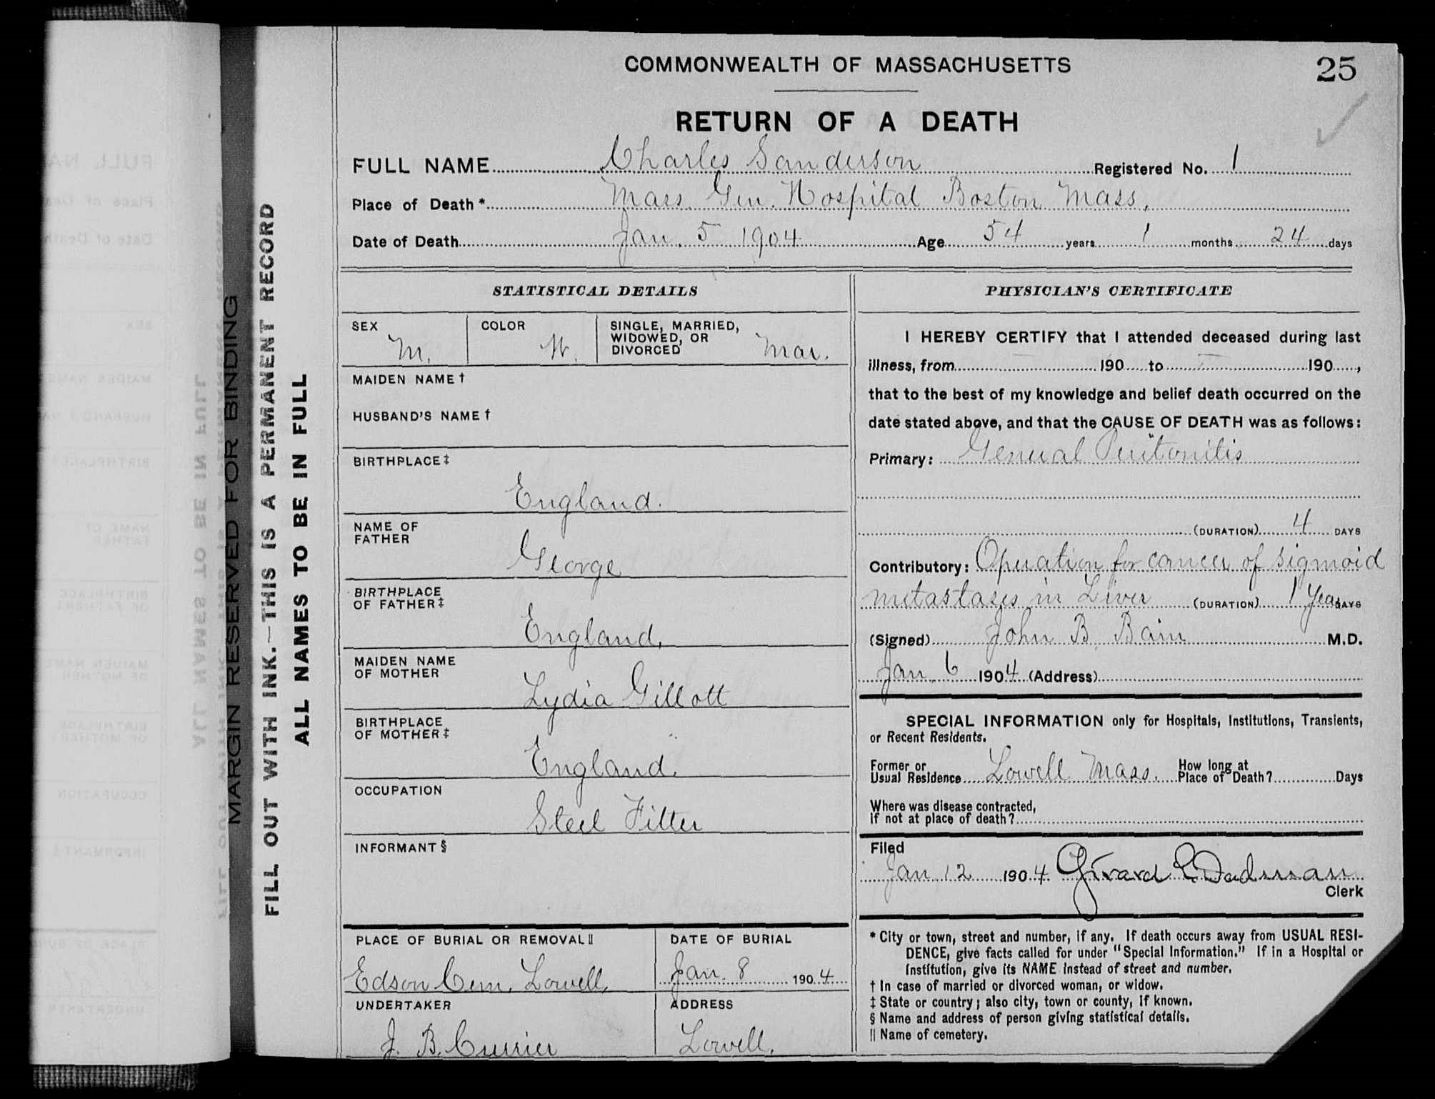 COMMONWEALTH OF MASSACHUSETTS
25
RETURN OF A DEATH
FULL NAME Charles Sanderson Registered No. 1
Place of Death* Mass Gen. Hospital Boston Mass.
Date of Death Jan. 5 1904 Age 54 years 1 months 24 days
MARGIN RESERVED FOR BINDING
FILL OUT WITH INK.—THIS IS A PERMANENT RECORD
ALL NAMES TO BE IN FULL
STATISTICAL DETAILS
SEX M.
COLOR W.
SINGLE, MARRIED, WIDOWED, OR DIVORCED Mar.
MAIDEN NAME †
HUSBAND'S NAME †
BIRTHPLACE ‡
England.
NAME OF FATHER
George
BIRTHPLACE OF FATHER ‡
England,
MAIDEN NAME OF MOTHER
Lydia Gillott
BIRTHPLACE OF MOTHER ‡
England.
OCCUPATION
Steel Fitter
INFORMANT §
PLACE OF BURIAL OR REMOVAL ||
Edson Cem. Lowell,
DATE OF BURIAL
Jan. 8 1904
UNDERTAKER
J. B. Currier
ADDRESS
Lowell.
PHYSICIAN'S CERTIFICATE
I HEREBY CERTIFY that I attended deceased during last
illness, from 190 to 190 ,
that to the best of my knowledge and belief death occurred on the
date stated above, and that the CAUSE OF DEATH was as follows:
Primary: General Peritonitis
(DURATION) 4 DAYS
Contributory: Operation for cancer of sigmoid
metastases in Liver (DURATION) 1 Year DAYS
(Signed) John B. Bain M.D.
Jan. 6 1904 (Address)
SPECIAL INFORMATION only for Hospitals, Institutions, Transients,
or Recent Residents.
Former or Usual Residence Lowell Mass. How long at Place of Death? Days
Where was disease contracted,
if not at place of death?
Filed
Jan 12 1904 Girard P. Dadman
Clerk
* City or town, street and number, if any. If death occurs away from USUAL RESI-
DENCE, give facts called for under "Special Information." If in a Hospital or
Institution, give its NAME instead of street and number.
† In case of married or divorced woman, or widow.
‡ State or country; also city, town or county, if known.
§ Name and address of person giving statistical details.
|| Name of cemetery.